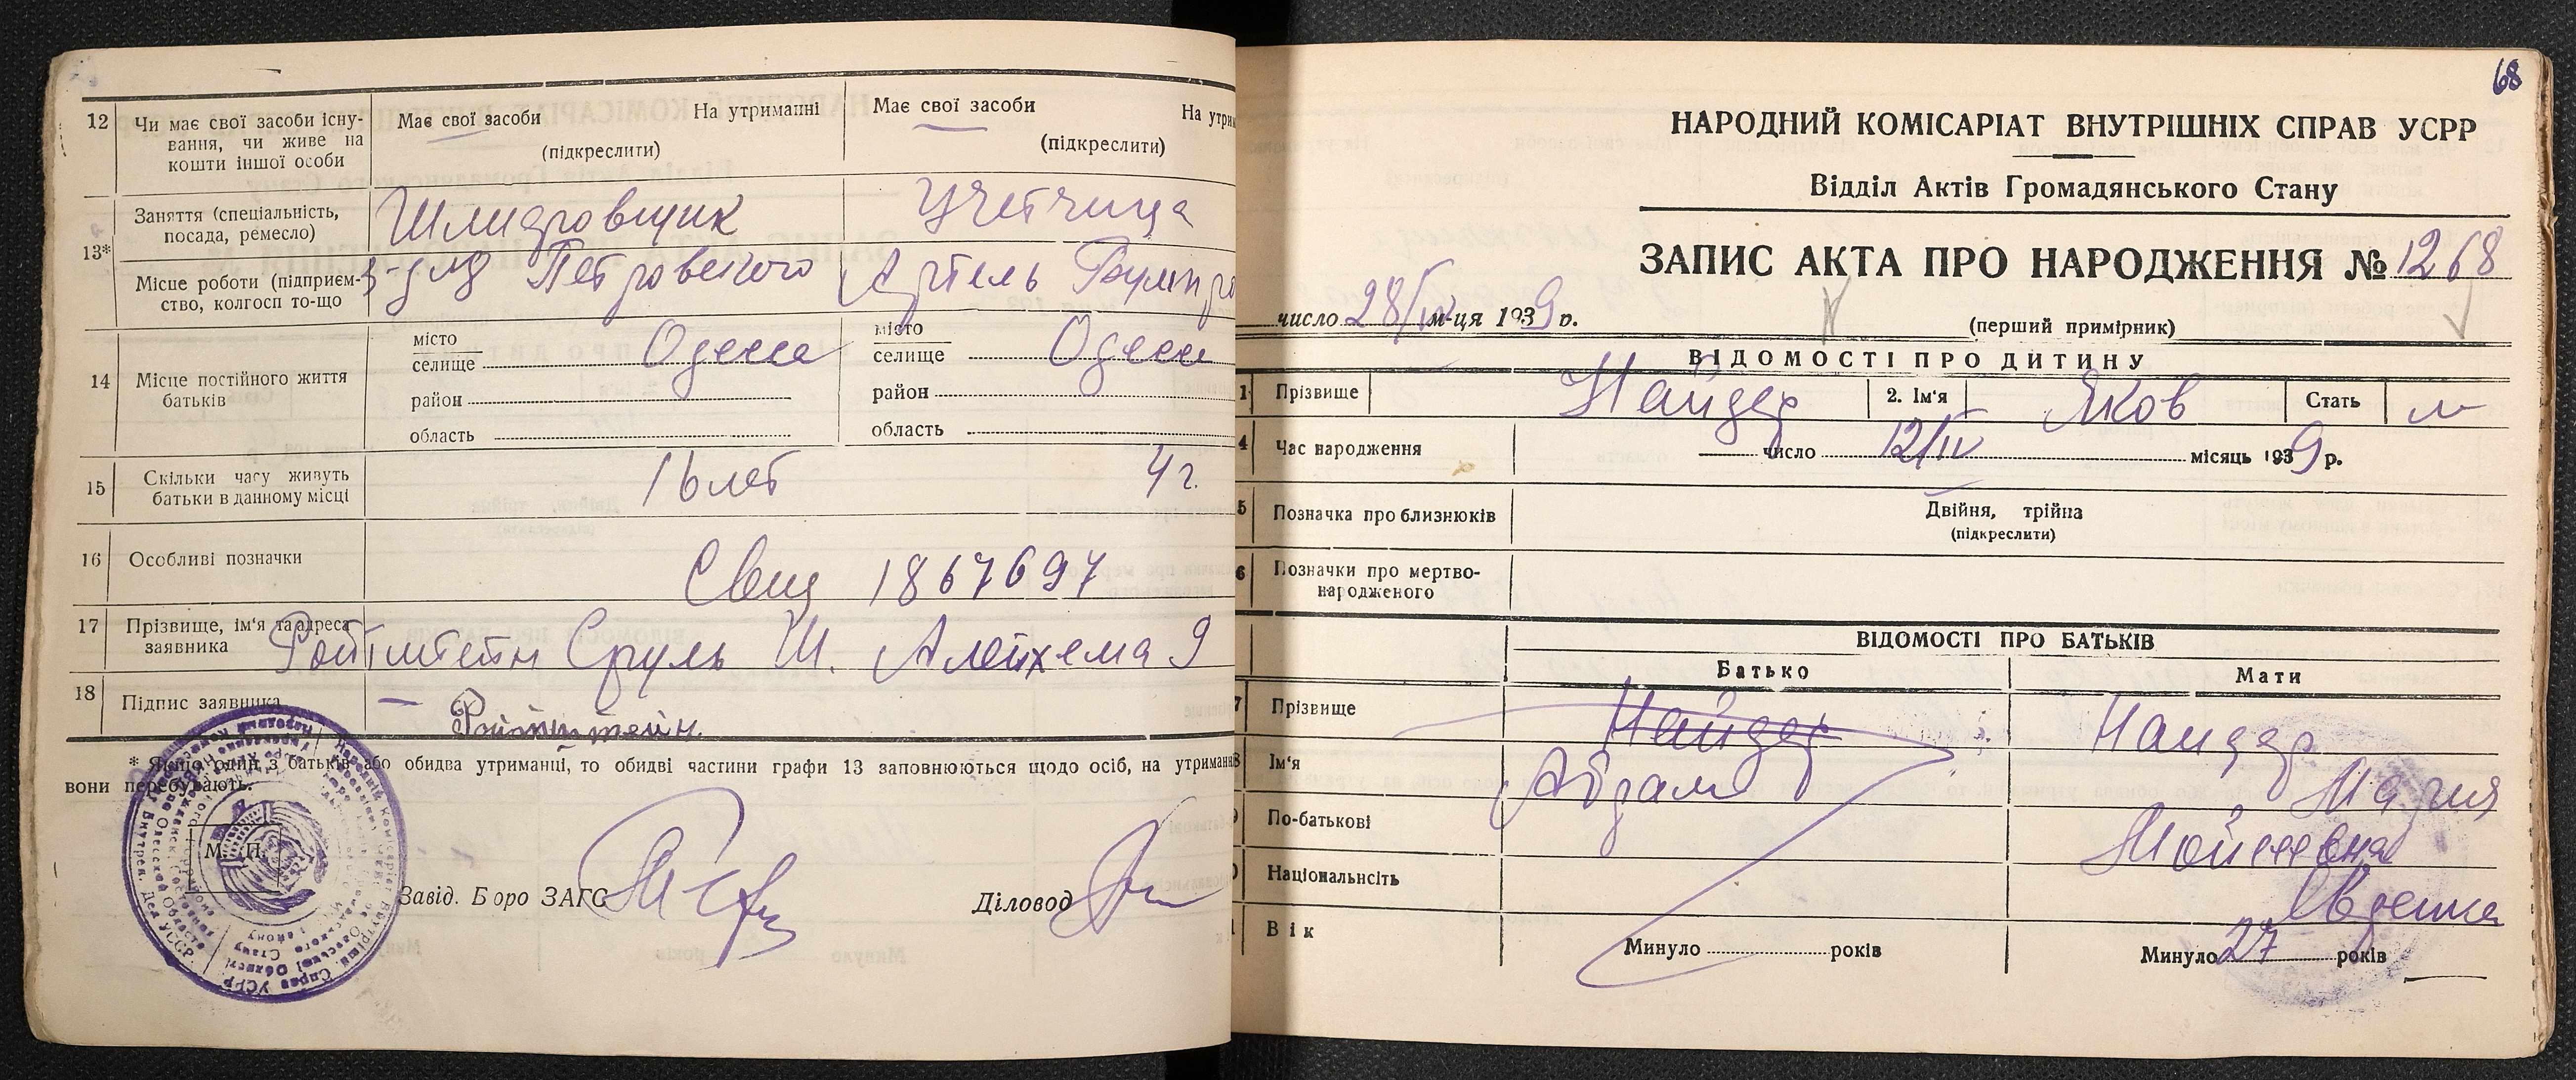 12 Чи має свої засоби існу-
вання, чи живе на
кошти іншої особи
Має свої засоби На утриманні
(підкреслити)
Має свої засоби На утри
(підкреслити)
13* Заняття (спеціальність,
посада, ремесло)
Шлифовщик Учетчица
Місце роботи (підприєм-
ство, колгосп то-що
З-д им Петровского Артель
14 Місце постійного життя
батьків
місто
селище Одесса
район
область
місто
селище Одесса
район
область
15 Скільки часу живуть
батьки в данному місці
16 лет 4 г.
16 Особливі позначки
Свид 1867697
17 Прізвище, ім'я та адреса
заявника
Ройтштейн Сруль Ш. Алейхема 9
18 Підпис заявника
Ройтштейн.
* Якщо один з батьків або обидва утриманці, то обидві частини графи 13 заповнюються щодо осіб, на утриманні
вони перебувають.
М. П.
Завід. Бюро ЗАГС Діловод
68
НАРОДНИЙ КОМІСАРІАТ ВНУТРІШНІХ СПРАВ УСРР
Відділ Актів Громадянського Стану
ЗАПИС АКТА ПРО НАРОДЖЕННЯ № 1268
число 28/IV м-ця 1939 р.
(перший примірник)
ВІДОМОСТІ ПРО ДИТИНУ
1 Прізвище Найдер 2. Ім'я Яков Стать м
4 Час народження число 12/IV місяць 1939 р.
5 Позначка про близнюків Двійня, трійна
(підкреслити)
6 Позначки про мертво-
народженого
ВІДОМОСТІ ПРО БАТЬКІВ
Батько Мати
7 Прізвище Найдер Найдер
8 Ім'я Абрам Мария
9 По-батькові Мойсеевна
Національнсіть Еврейка
Вік Минуло років Минуло 27 років